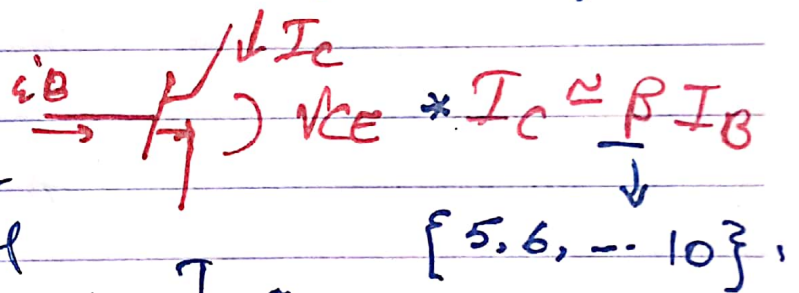 ↓ I_C
i_B → ) V_CE * I_C ≃ β I_B
↓
{5, 6, ... 10},